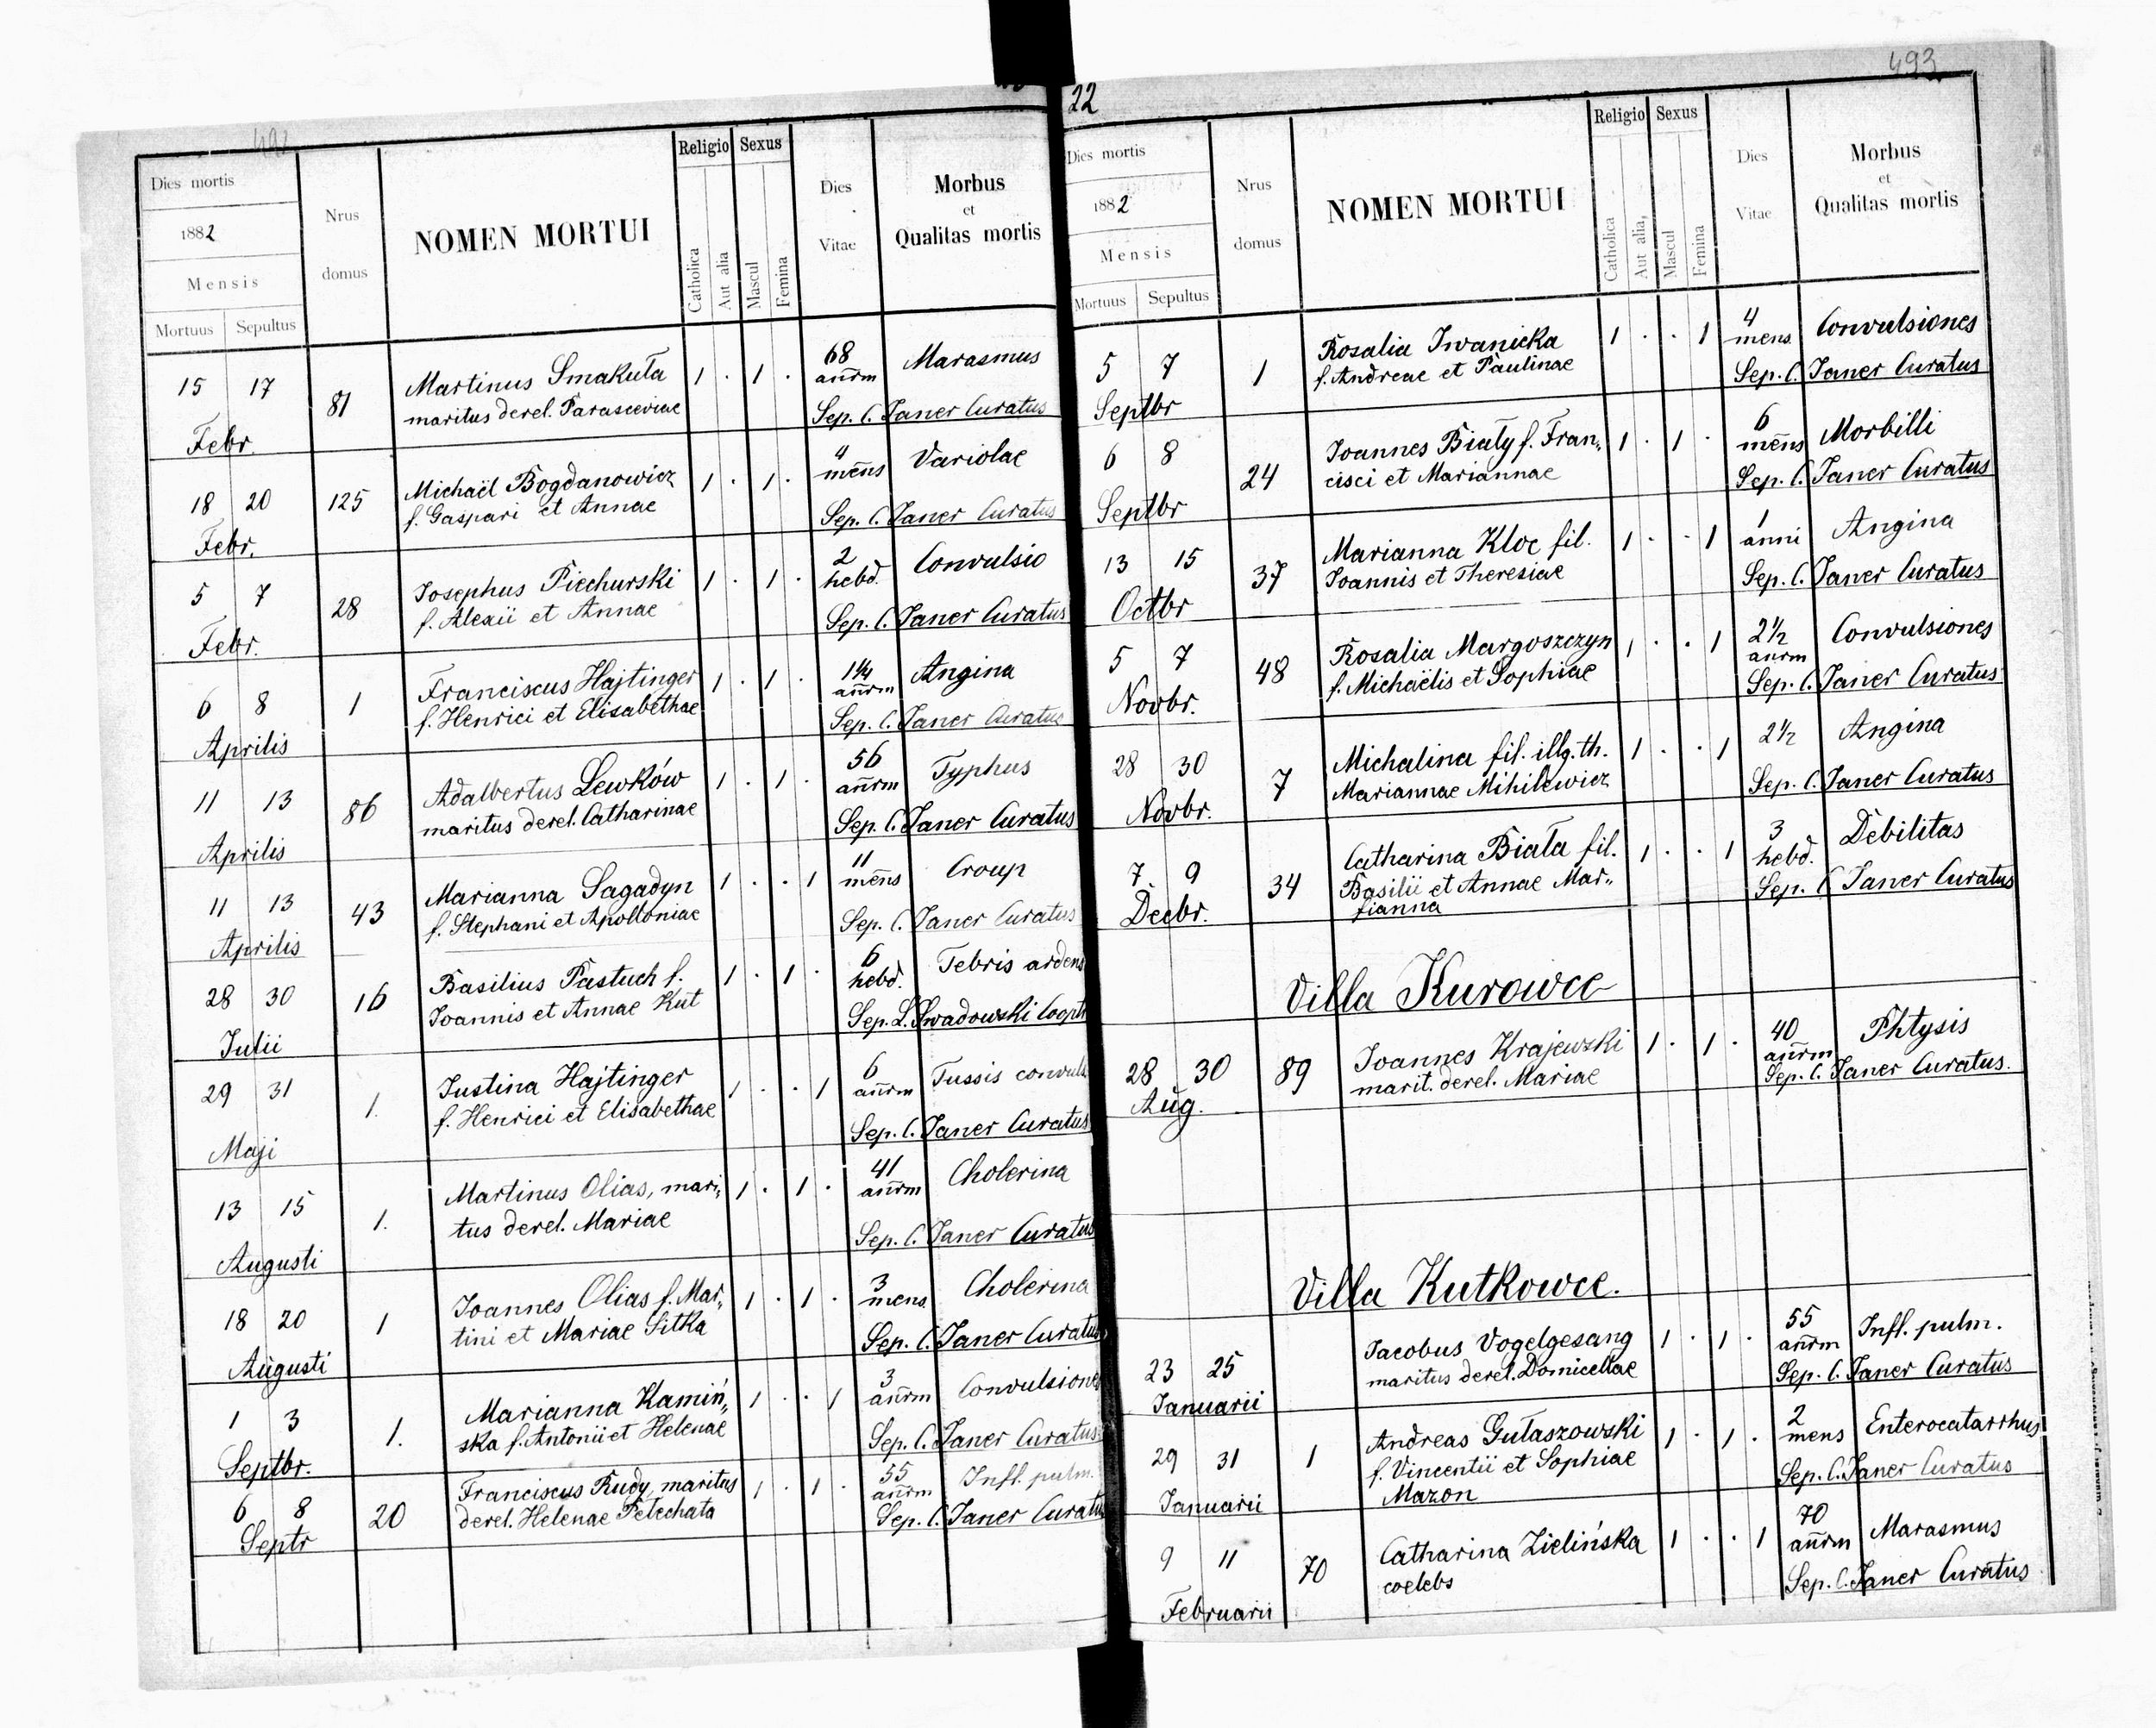 492
Dies mortis
1882
Mensis
Mortuus Sepultus
Nrus
domus
NOMEN MORTUI
Religio Sexus
Catholica
Aut alia
Mascul
Femina
Dies
Vitae
Morbus
et
Qualitas mortis
15 17
Febr.
81
Martinus Smakuła
maritus derel. Parasceviae
1 . 1 .
68
annrm
Marasmus
Sep. C. Janer Curatus
18 20
Febr.
125
Michaël Bogdanowicz
f. Gaspari et Annae
1 . 1 .
4
mens
Variolae
Sep. C. Janer Curatus
5 7
Febr.
28
Josephus Piechurski
f. Alexii et Annae
1 . 1 .
2
hebd.
Convulsio
Sep. C. Janer Curatus
6 8
Aprilis
1
Franciscus Hajtinger
f. Henrici et Elisabethae
1 . 1 .
1¼
annrm
Angina
Sep. C. Janer Curatus
11 13
Aprilis
86
Adalbertus Lewków
maritus derel. Catharinae
1 . 1 .
56
annrm
Typhus
Sep. C. Janer Curatus
11 13
Aprilis
43
Marianna Sagadyn
f. Stephani et Apolloniae
1 . . 1
11
mens
Croup
Sep. C. Janer Curatus
28 30
Julii
16
Basilius Pastuch f.
Joannis et Annae Kut
1 . 1 .
6
hebd.
Febris ardens
Sep. L. Swadowski Coopr
29 31
Maji
1.
Justina Hajtinger
f. Henrici et Elisabethae
1 . . 1
6
annrm
Tussis convuls
Sep. C. Janer Curatus
13 15
Augusti
1.
Martinus Olias, mari„
tus derel. Mariae
1 . 1 .
41
annrm
Cholerina
Sep. C. Janer Curatus
18 20
Augusti
1
Joannes Olias f. Mar„
tini et Mariae Sitka
1 . 1 .
3
mens
Cholerina
Sep. C. Janer Curatus
1 3
Septbr.
1.
Marianna Kamiń„
ska f. Antonii et Helenae
1 . . 1
3
annrm
Convulsiones
Sep. C. Janer Curatus
6 8
Septr
20
Franciscus Rudy, maritus
derel. Helenae Petechata
1 . 1 .
55
annrm
Infl. pulm.
Sep. C. Janer Curatus
22
493
Dies mortis
1882
Mensis
Mortuus Sepultus
Nrus
domus
NOMEN MORTUI
Religio Sexus
Catholica
Aut alia,
Mascul
Femina
Dies
Vitae
Morbus
et
Qualitas mortis
5 7
Septbr
1
Rosalia Iwanicka
f. Andreae et Paulinae
1 . . 1
4
mens
Convulsiones
Sep. C. Janer Curatus
6 8
Septbr
24
Joannes Biały f. Fran„
cisci et Mariannae
1 . 1 .
6
mens
Morbilli
Sep. C. Janer Curatus
13 15
Octbr
37
Marianna Kloc fil.
Joannis et Theresiae
1 . . 1
1
anni
Angina
Sep. C. Janer Curatus
5 7
Novbr.
48
Rosalia Margoszczyn
f. Michaëlis et Sophiae
1 . . 1
2½
annrm
Convulsiones
Sep. C. Janer Curatus
28 30
Novbr.
7
Michalina fil. illg. th.
Mariannae Mihilewicz
1 . . 1
2½
Angina
Sep. C. Janer Curatus
7 9
Decbr.
34
Catharina Biała fil.
Basilii et Annae Mar„
fianna
1 . . 1
3
hebd.
Debilitas
Sep. C. Janer Curatus
Villa Kurowce
28 30
Aug.
89
Joannes Krajewski
marit. derel. Mariae
1 . 1 .
40
annrm
Phtysis
Sep. C. Janer Curatus.
Villa Kutkowce.
23 25
Januarii
Jacobus Vogelgesang
maritus derel. Domicellae
1 . 1 .
55
annrm
Infl. pulm.
Sep. C. Janer Curatus
29 31
Januarii
1
Andreas Gułaszowski
f. Vincentii et Sophiae
Mazon
1 . 1 .
2
mens
Enterocatarrhus
Sep. C. Janer Curatus
9 11
Februarii
70
Catharina Zielińska
coelebs
1 . . 1
70
annrm
Marasmus
Sep. C. Janer Curatus